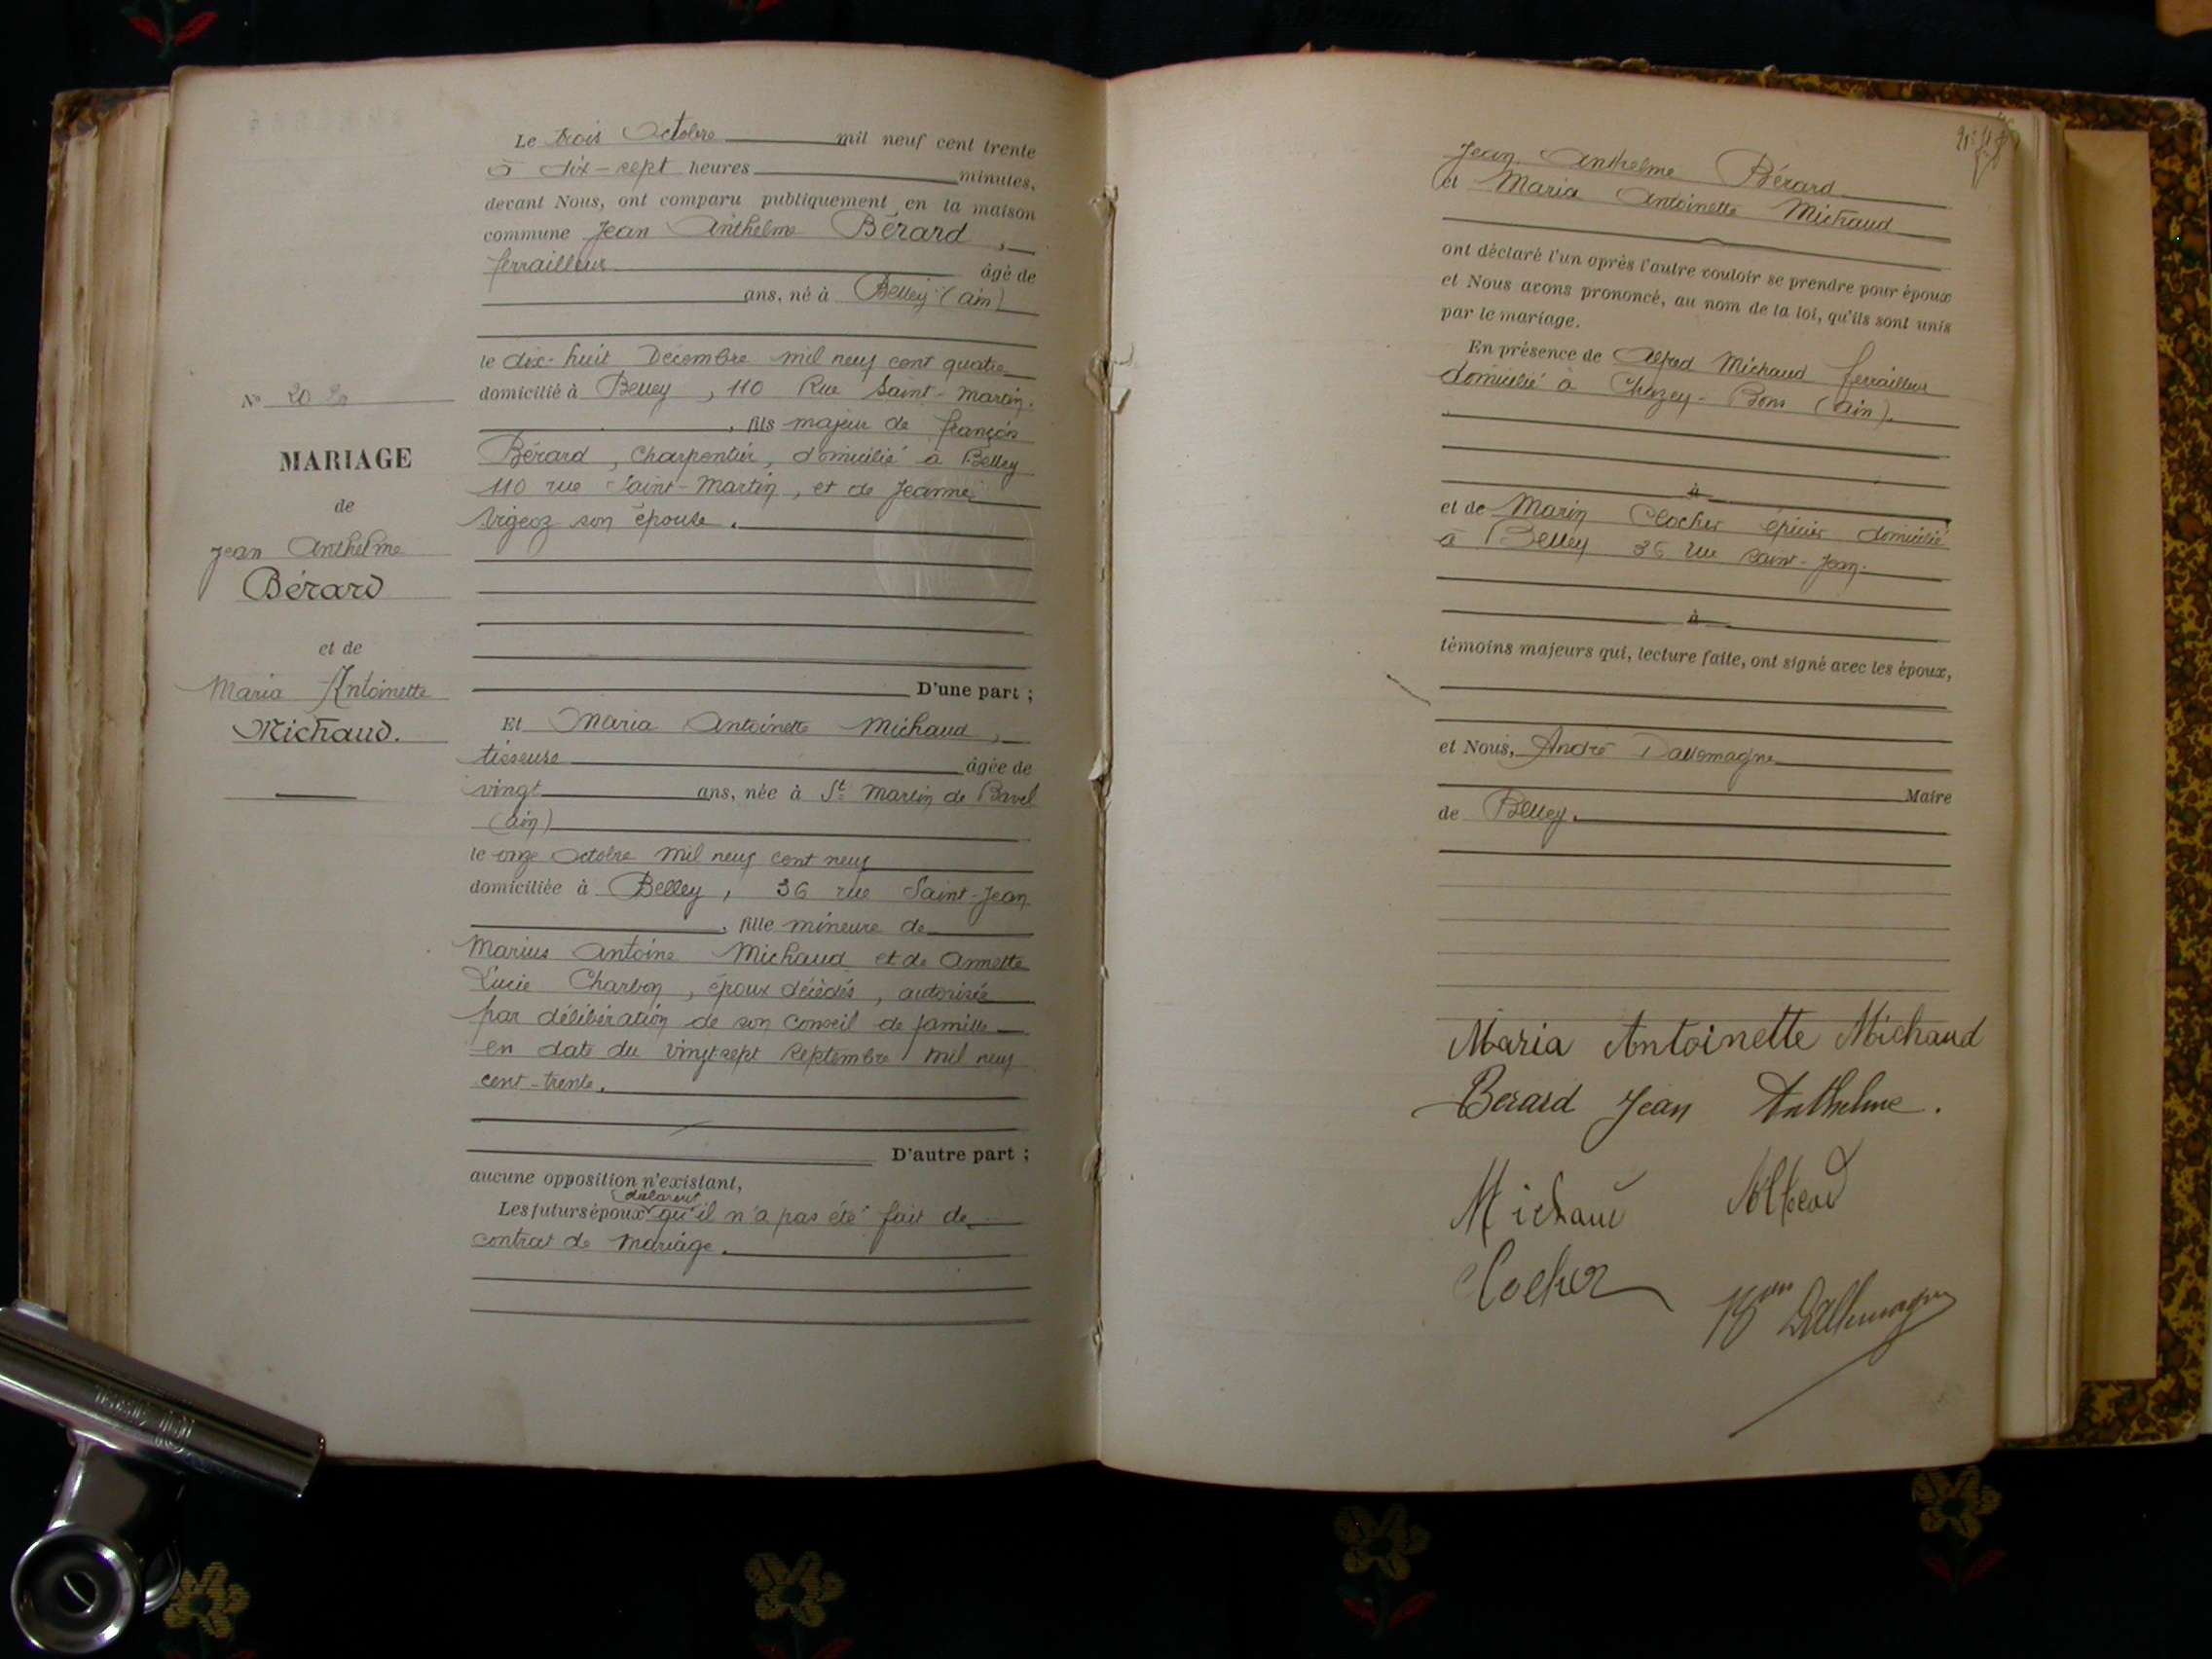 Le trois Octobre mil neuf cent trente
à dix-sept heures minutes,
devant Nous, ont comparu publiquement en la maison
commune Jean Anthelme Bérard,
ferrailleur âgé de
ans, né à Belley (Ain)
le dix-huit Décembre mil neuf cent quatre
domicilié à Belley, 110 Rue Saint-Martin.
, fils majeur de françois
Bérard, Charpentier, domicilié à Belley
110 rue Saint-Martin, et de Jeanne
Vigeoz son épouse.
D'une part ;
Et Maria Antoinette Michaud,
tisseuse âgée de
vingt ans, née à St Martin de Bavel
(Ain)
le onze Octobre mil neuf cent neuf
domiciliée à Belley, 36 rue Saint-Jean
, fille mineure de
Marius Antoine Michaud et de Annette
Lucie Charbon, époux décédés, autorisée
par délibération de son Conseil de famille
en date du vingt-sept Septembre mil neuf
cent-trente.
D'autre part ;
aucune opposition n'existant,
déclarent
Les futurs époux qu'il n'a pas été fait de
contrat de mariage.
N° 20
MARIAGE
de
Jean Anthelme
Bérard
et de
Maria Antoinette
Michaud.
Jean Anthelme Bérard
et Maria Antoinette Michaud
ont déclaré l'un après l'autre vouloir se prendre pour époux
et Nous avons prononcé, au nom de la loi, qu'ils sont unis
par le mariage.
En présence de Alfred Michaud ferrailleur
domicilié à Chazey-Bons (Ain).
à
et de Marin Clocher épicier domicilié
à Belley 36 rue Saint-Jean.
à
témoins majeurs qui, lecture faite, ont signé avec les époux,
et Nous, André Dallemagne
Maire
de Belley.
Maria Antoinette Michaud
Berard Jean Anthelme.
Michaud Alfred
Clocher
Bon Dallemagne